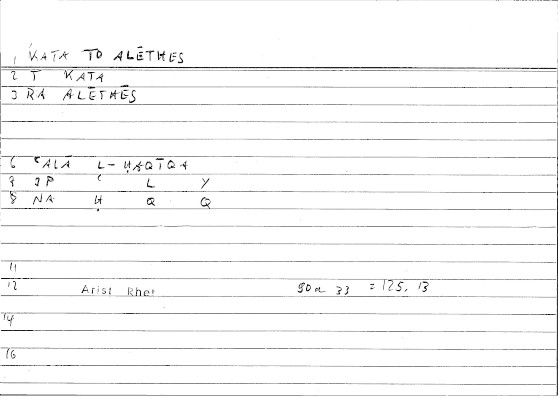 1 KATA TO ALĒTHES
2 T KATA
3 RA ALĒTHĒS
6 ʿALĀ L-ḤAQĪQA
7 JP ʿ L Y
8 NA Ḥ Q Q
11
12 Arist Rhet 90a 33 = 125, 13
14
16